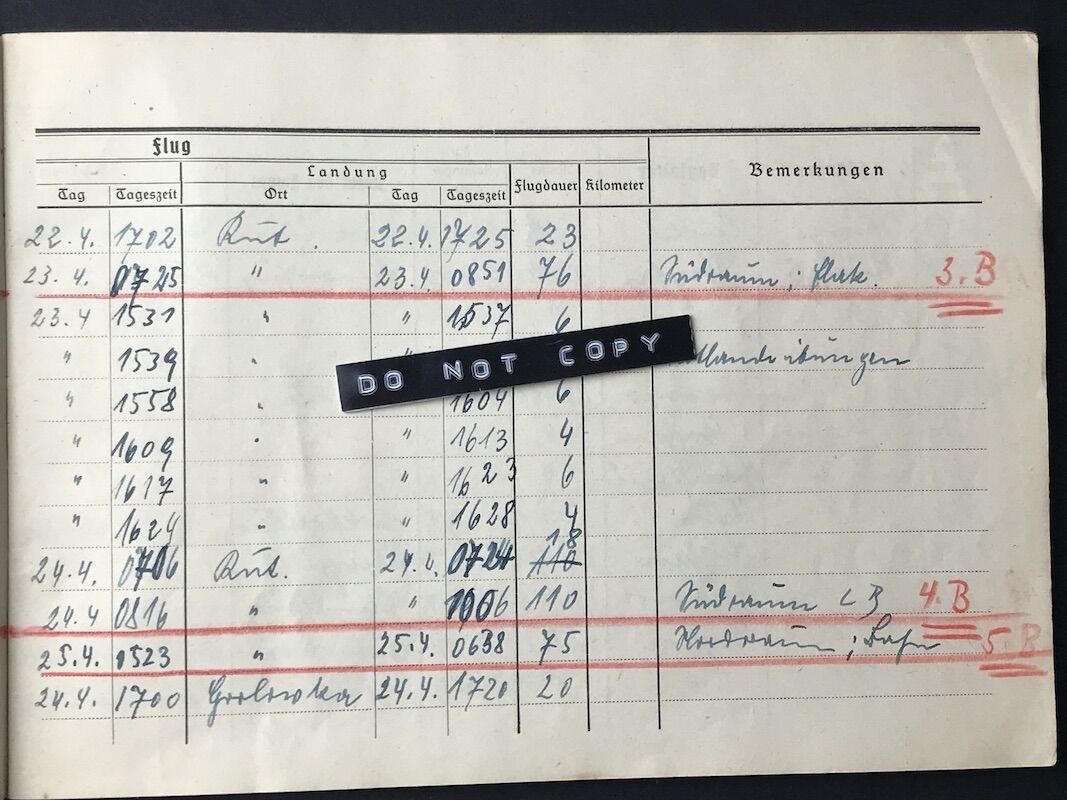 Flug
Landung
Bemerkungen
Tag Tageszeit Ort Tag Tageszeit Flugdauer Kilometer
22.4. 1702 Kut. 22.4. 1725 23
23.4. 0725 " 23.4. 0851 76 Südraum; Flak. 3.B
23.4 1531 " " 1537 6
" 1539 "
DO NOT COPY
" 1558 " 1604 6
" 1609 " " 1613 4
" 1617 " " 1623 6
" 1624 " " 1628 4
24.4. 0706 Kut. 24.4. 0724 18
24.4 0816 " " 1006 110 Südraum LB 4.B
25.4. 0523 " 25.4. 0638 75 Nordraum; Bahn 5.B
24.4. 1700 Gorlowka 24.4. 1720 20